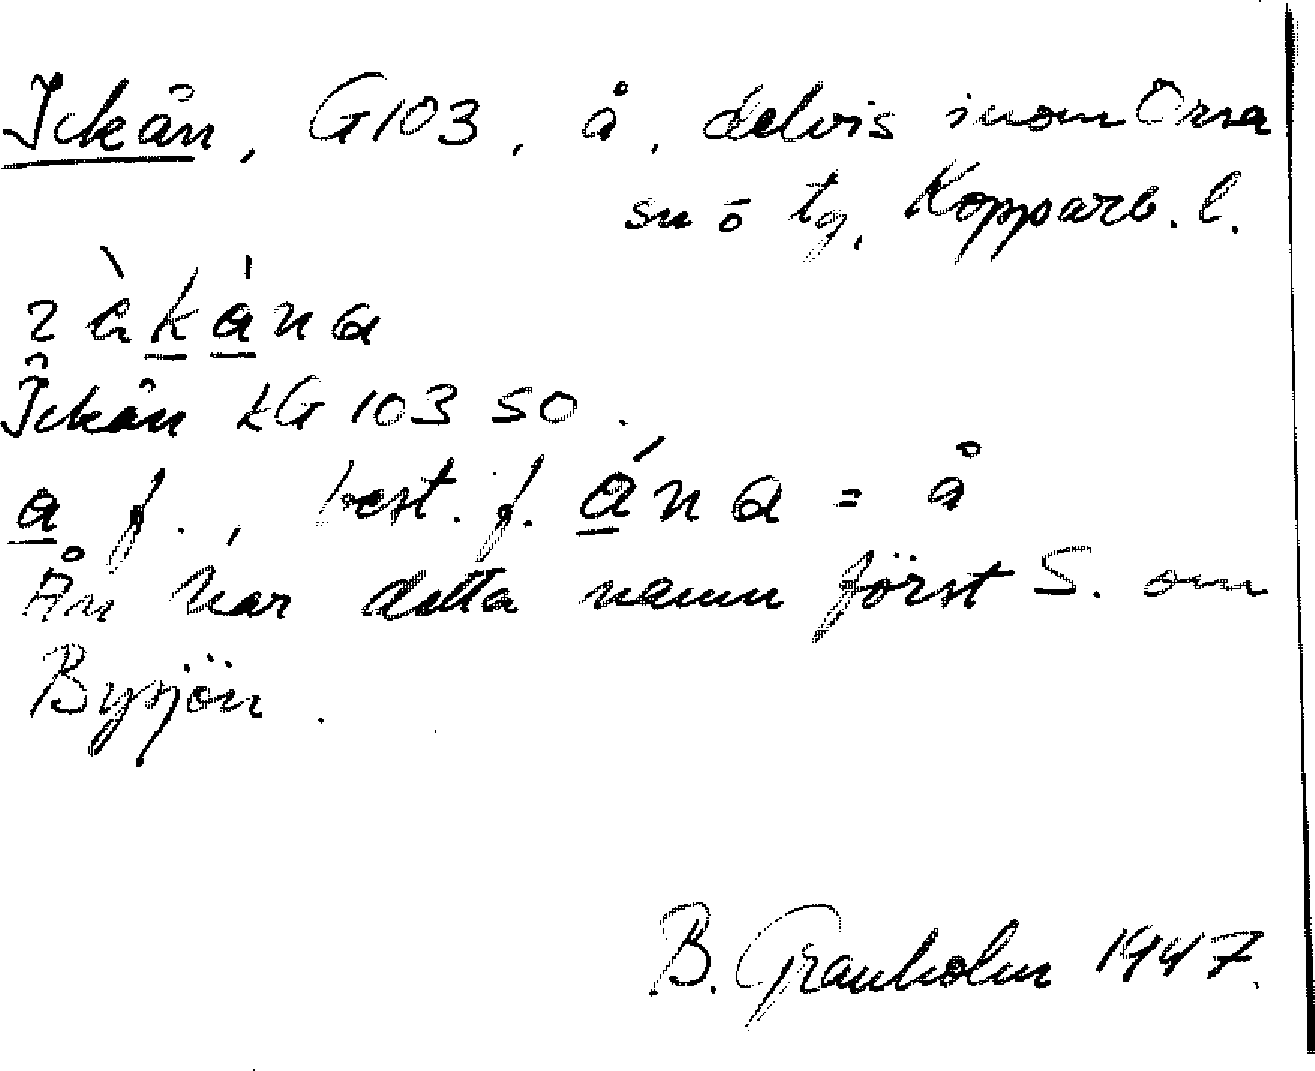 Ickån, G103, å, delvis inom Orsa
sn ö tg, Kopparb. l.
Ickån KG 103 SO.
a f., best. f. ána = å
Ån har detta namn först S. om
Bysjön.
B. Granholm 1947.